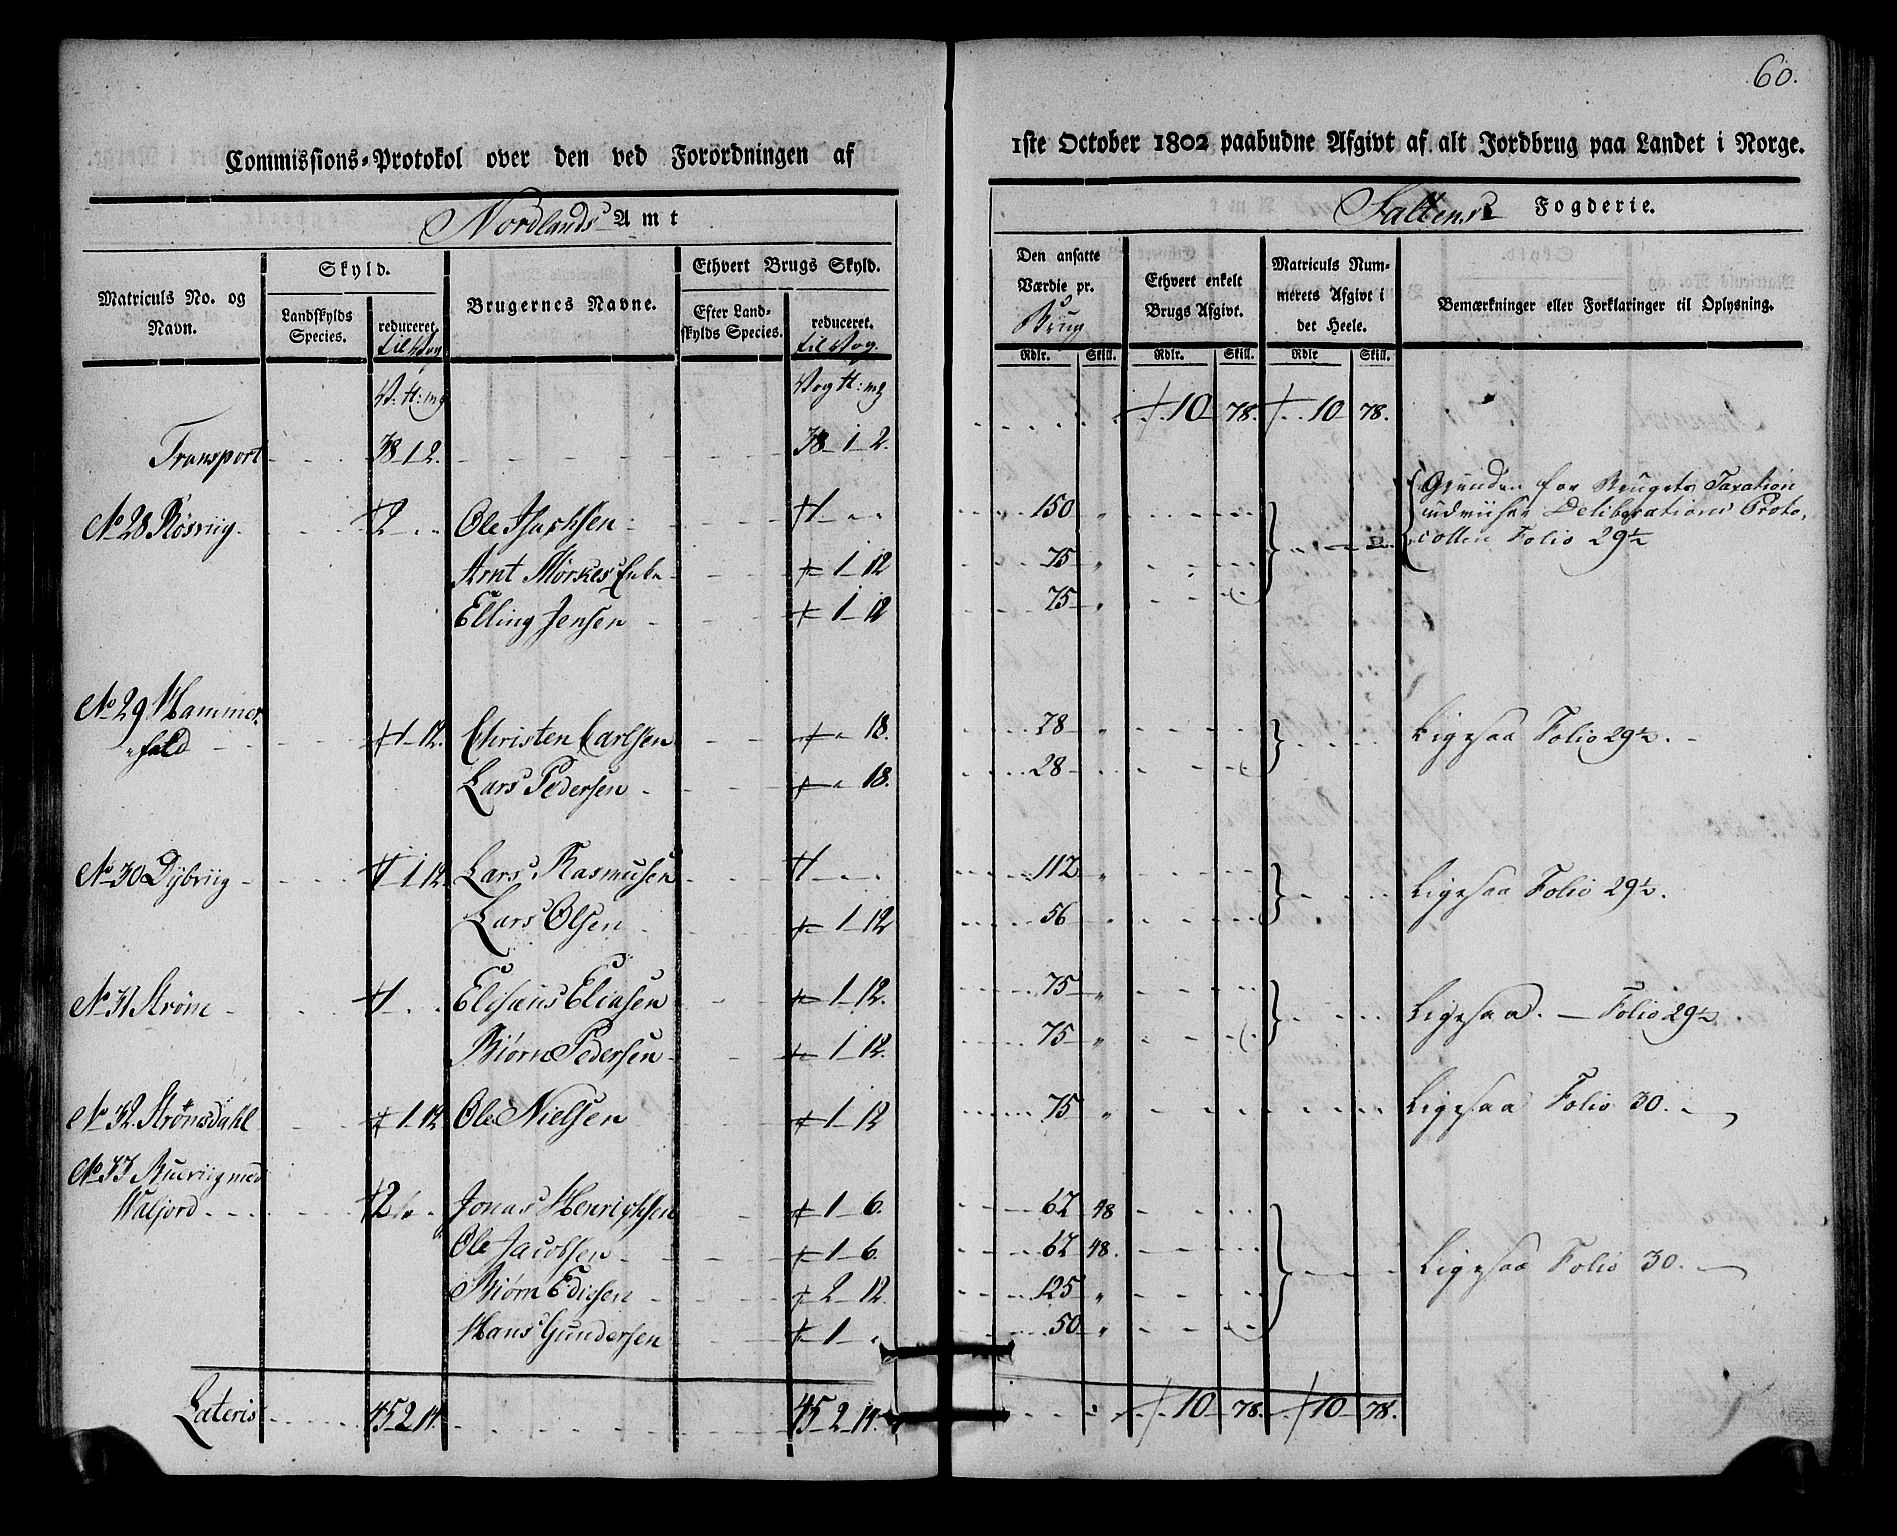 60.
Commissions-Protokol over den ved Forordningen af
1ste October 1802 paabudne Afgivt af alt Jordbrug paa Landet i Norge.
Nordlands Amt
Saltens Fogderie.
Matriculs No. og Navn.
Skyld.
Landskylds Species.
reduceret. til Vog
Brugernes Navne.
Ethvert Brugs Skyld.
Efter Landskylds Species.
reduceret. til Vog.
Den ansatte Værdie pr. Brug
Ethvert enkelt Brugs Afgivt.
Matriculs Nummerets Afgivt i det Heele.
Bemærkninger eller Forklaringer til Oplysning.
Rdlr. Skill. Rdlr. Skill. Rdlr Skill.
Transport 38 1 2. 38 1 2. 10 78. 10 78.
No 28 Røsviig. 2 Ole Isachsen 1 150
Arnt Mørkes Enke 1 12 75
Elling Jensen 1 12 75
Grunden for Brugets Taxation
udviiser Deliberations Proto,
collen Folio 29½
No 29 Hammer,
fald 1 12. Christen Carlsen 18. 28 Ligesaa Folio 29½.
Lars Pedersen 18. 28
No 30 Dybviig 1 1 12. Lars Rasmusen 1 112 Ligesaa Folio 29½.
Lars Olsen 1 12 56
No 31 Strøm 1 Elisæus Eliasen 1 12. 75 Ligesaa. Folio 29½
Biørn Pedersen 1 12. 75
No 32. Strømsdahl 1 12 Ole Nielsen 1 12 75 Ligesaa Folio 30.
No 33 med
Waljord 2 Jonas Henrichsen 1 6. 62 48
Ole Jacobsen 1 6. 62 48.
Biørn 2 12. 125 Ligesaa Folio 30.
Hans Gundersen 1 50
Lateris 45 2 14. 45 2 14. 10 78. 10 78.